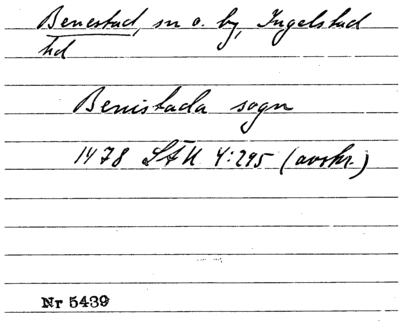 Benestad, sn o. by, Ingelstad
hd
Benistada sogn
1478 LÄU 4:295 (avskr.)
Nr 5439